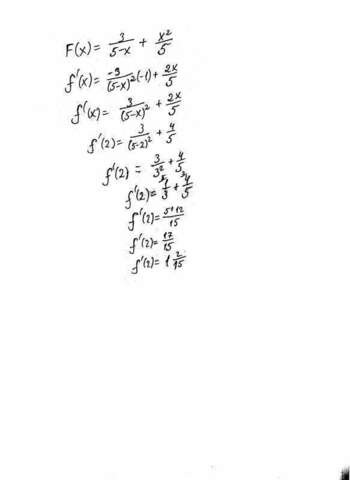 F(x) = 3/(5-x) + x²/5
f'(x) = -3/(5-x)² (-1) + 2x/5
f'(x) = 3/(5-x)² + 2x/5
f'(2) = 3/(5-2)² + 4/5
f'(2) = 3/3² + 4/5
f'(2) = 1/3 + 4/5
f'(2) = 5+12/15
f'(2) = 17/15
f'(2) = 1 2/15